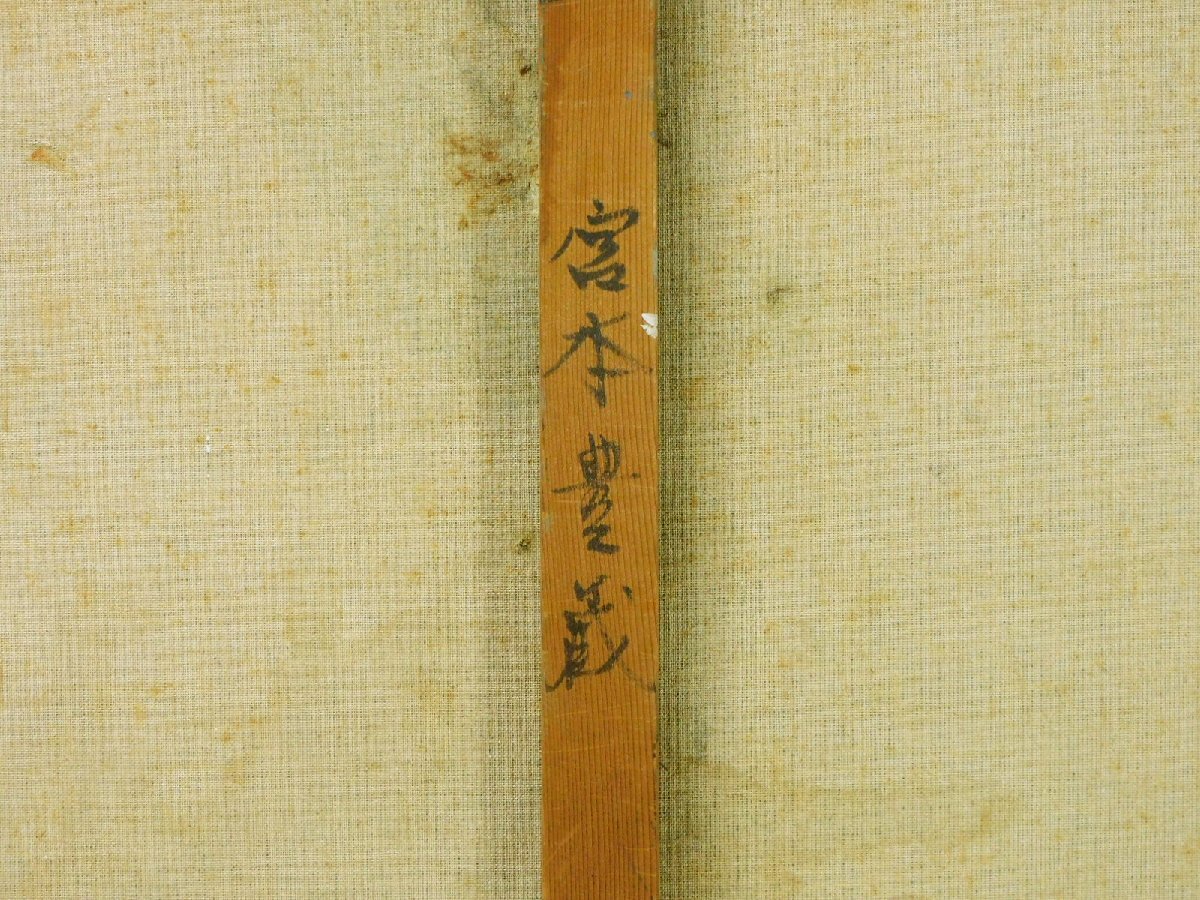 宮本豊蔵